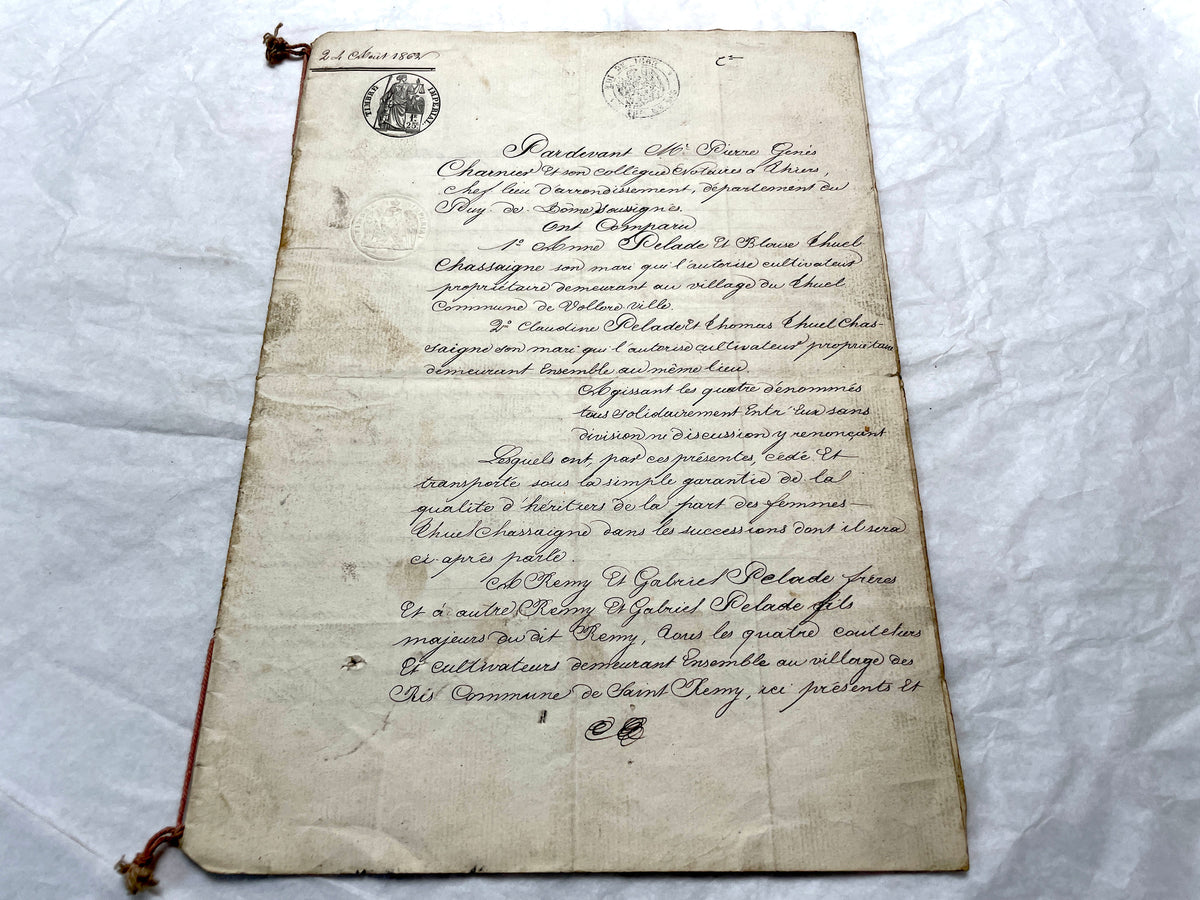 24 Août 1862
TIMBRE IMPERIAL
1F
25C
LOI DE 1862
Pardevant Mr. Pierre Genès
Charnier Et son collègue Notaires à Thiers,
chef lieu d'arrondissement, département du
Puy. de. Dôme soussignés.
Ont Comparu
1º Anne Pelade Et Blaise Thuel
Chassaigne son mari qui l'autorise cultivateur
propriétaire demeurant au village du Thuel
Commune de Vollore-ville.
2º Claudine Pelade Et Thomas Thuel Chas-
saigne son mari qui l'autorise cultivateur propriétaire
demeurant Ensemble au même lieu.
Agissant les quatre dénommés
tous solidairement Entr'Eux sans
division ni discussion y renonçant
Lesquels ont, par ces présentes, cédé Et
transporté sous la simple garantie de la
qualité d'héritiers de la part des femmes
Thuel Chassaigne dans les successions dont il sera
ci-après parlé.
A Remy Et Gabriel Pelade frères
Et à autre Remy Et Gabriel Pelade fils
majeurs du dit Remy, tous les quatre couteliers
Et cultivateurs demeurant Ensemble au village des
Ris Commune de Saint Remy, ici présents Et